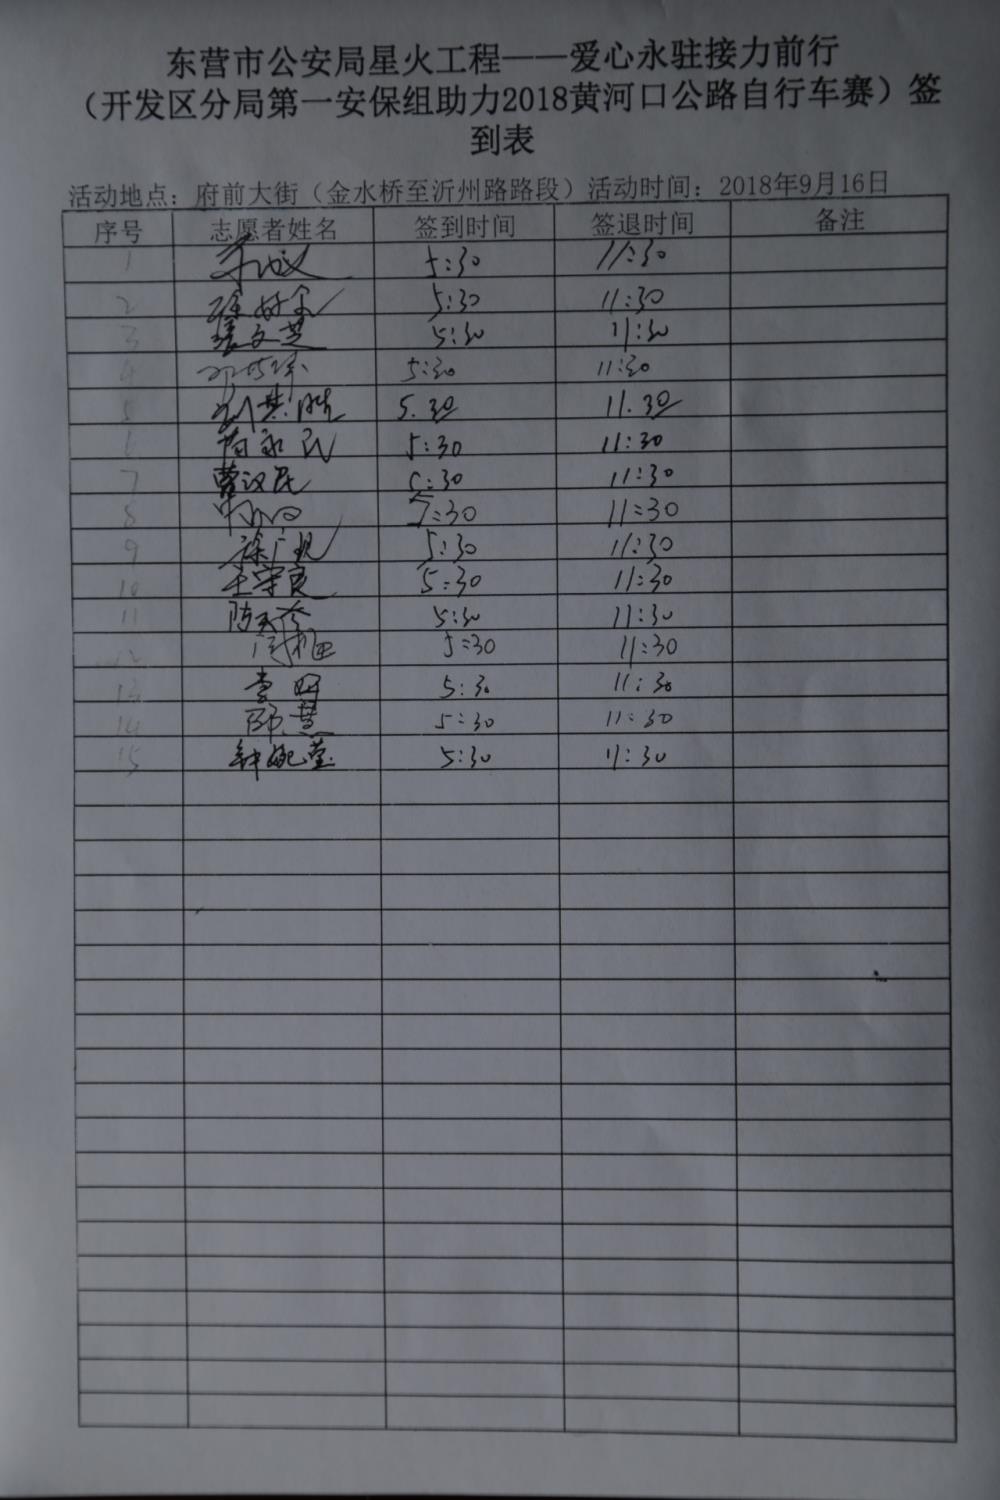 东营市公安局星火工程——爱心永驻接力前行
（开发区分局第一安保组助力2018黄河口公路自行车赛）签
到表
活动地点：府前大街（金水桥至沂州路路段）活动时间：2018年9月16日
序号 志愿者姓名 签到时间 签退时间 备注
1 5:30 11:30
2 5:30 11:30
3 张文芝 5:30 11:30
4 5:30 11:30
5 刘其胜 5.30 11.30
6 永民 5:30 11:30
7 曹汉民 5:30 11:30
8 5:30 11:30
9 5:30 11:30
10 王守良 5:30 11:30
11 5:30 11:30
12 5:30 11:30
13 李明 5:30 11:30
14 慧 5:30 11:30
15 钟婉莹 5:30 11:30